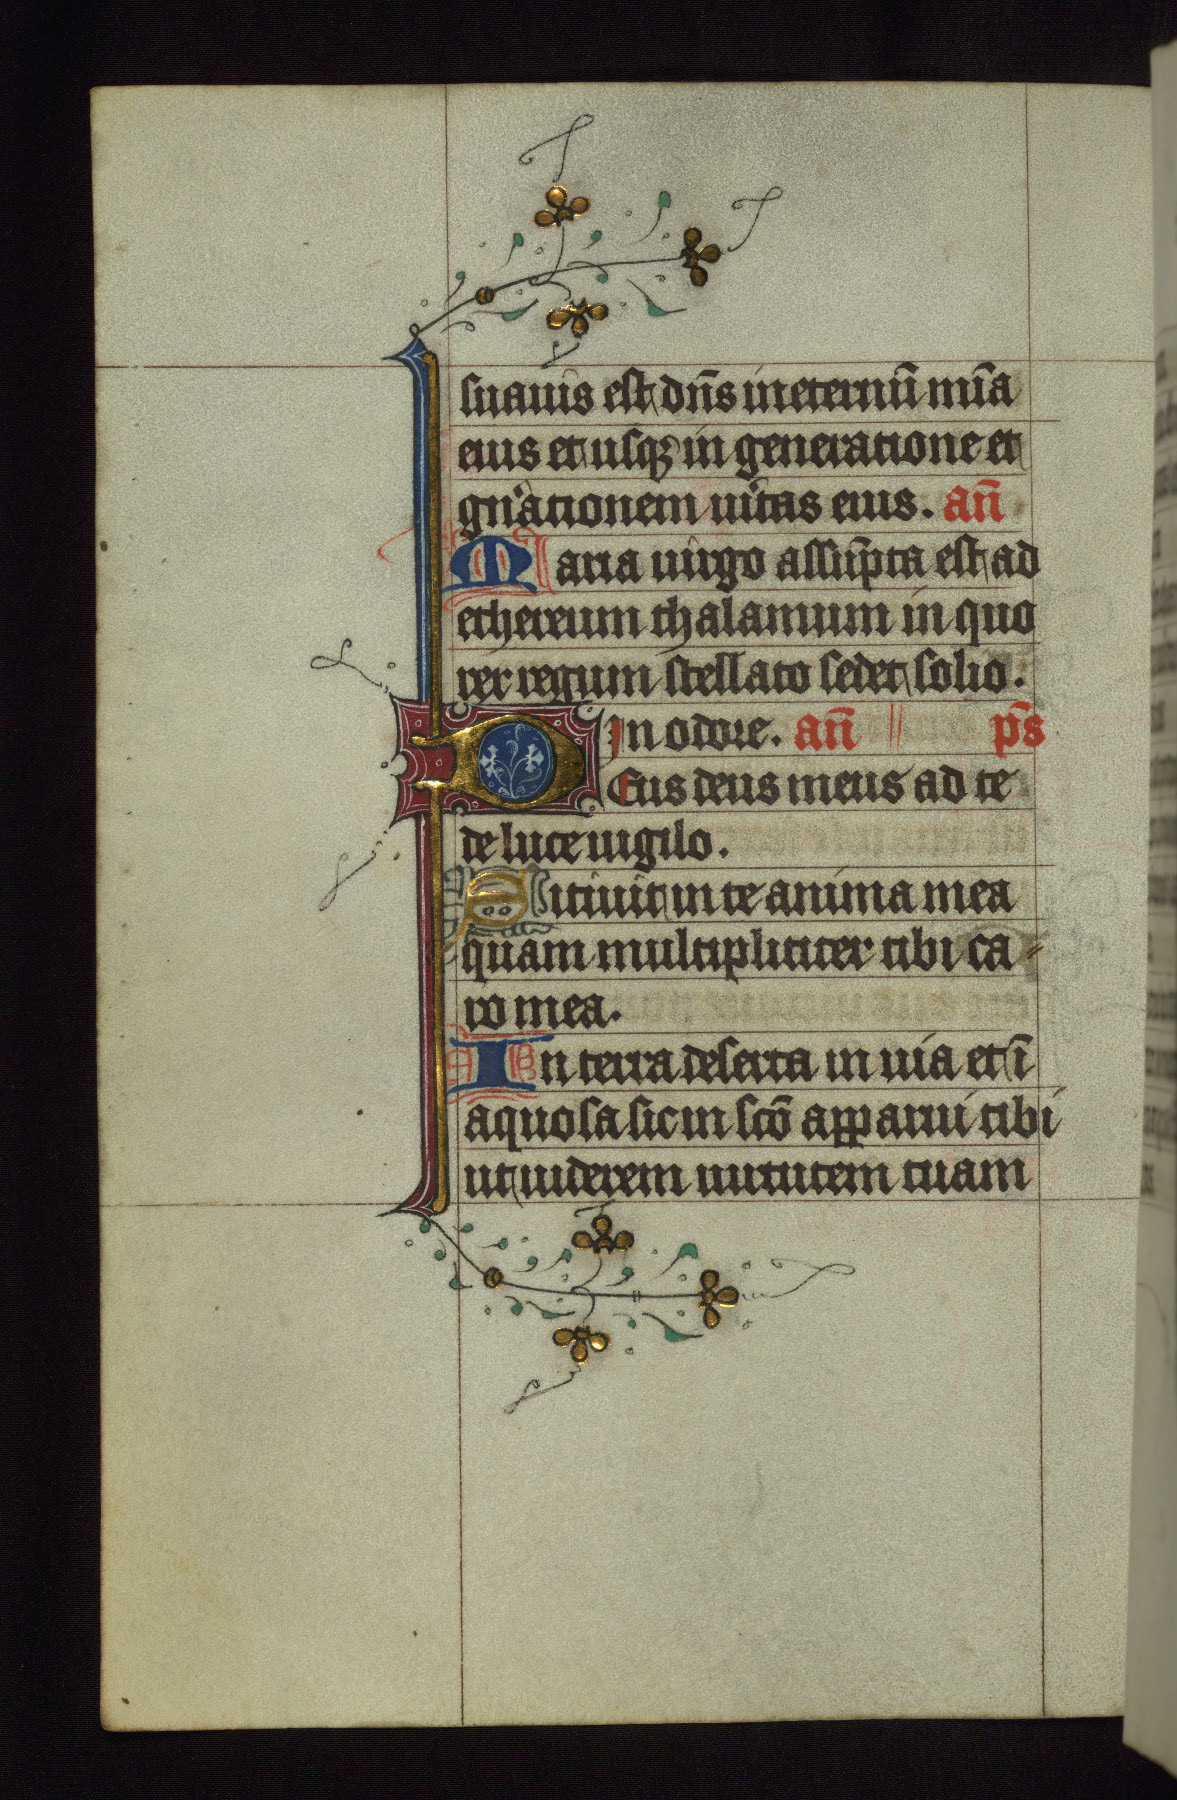 suauis est dn̄s in eternū mīa
eius et usqꝫ in generatione et
gn̄ationem uītas eius. an̄
Maria uirgo assūpta est ad
ethereum thalamum in quo
rex regum stellato sedet solio.
In odore. an̄ p̄s
Deus deus meus ad te
de luce uigilo.
Sitiuit in te anima mea
quam multipliciter tibi ca-
ro mea.
In terra deserta in uia et ī
aquosa sic in scō apparui tibi
ut uiderem uirtutem tuam